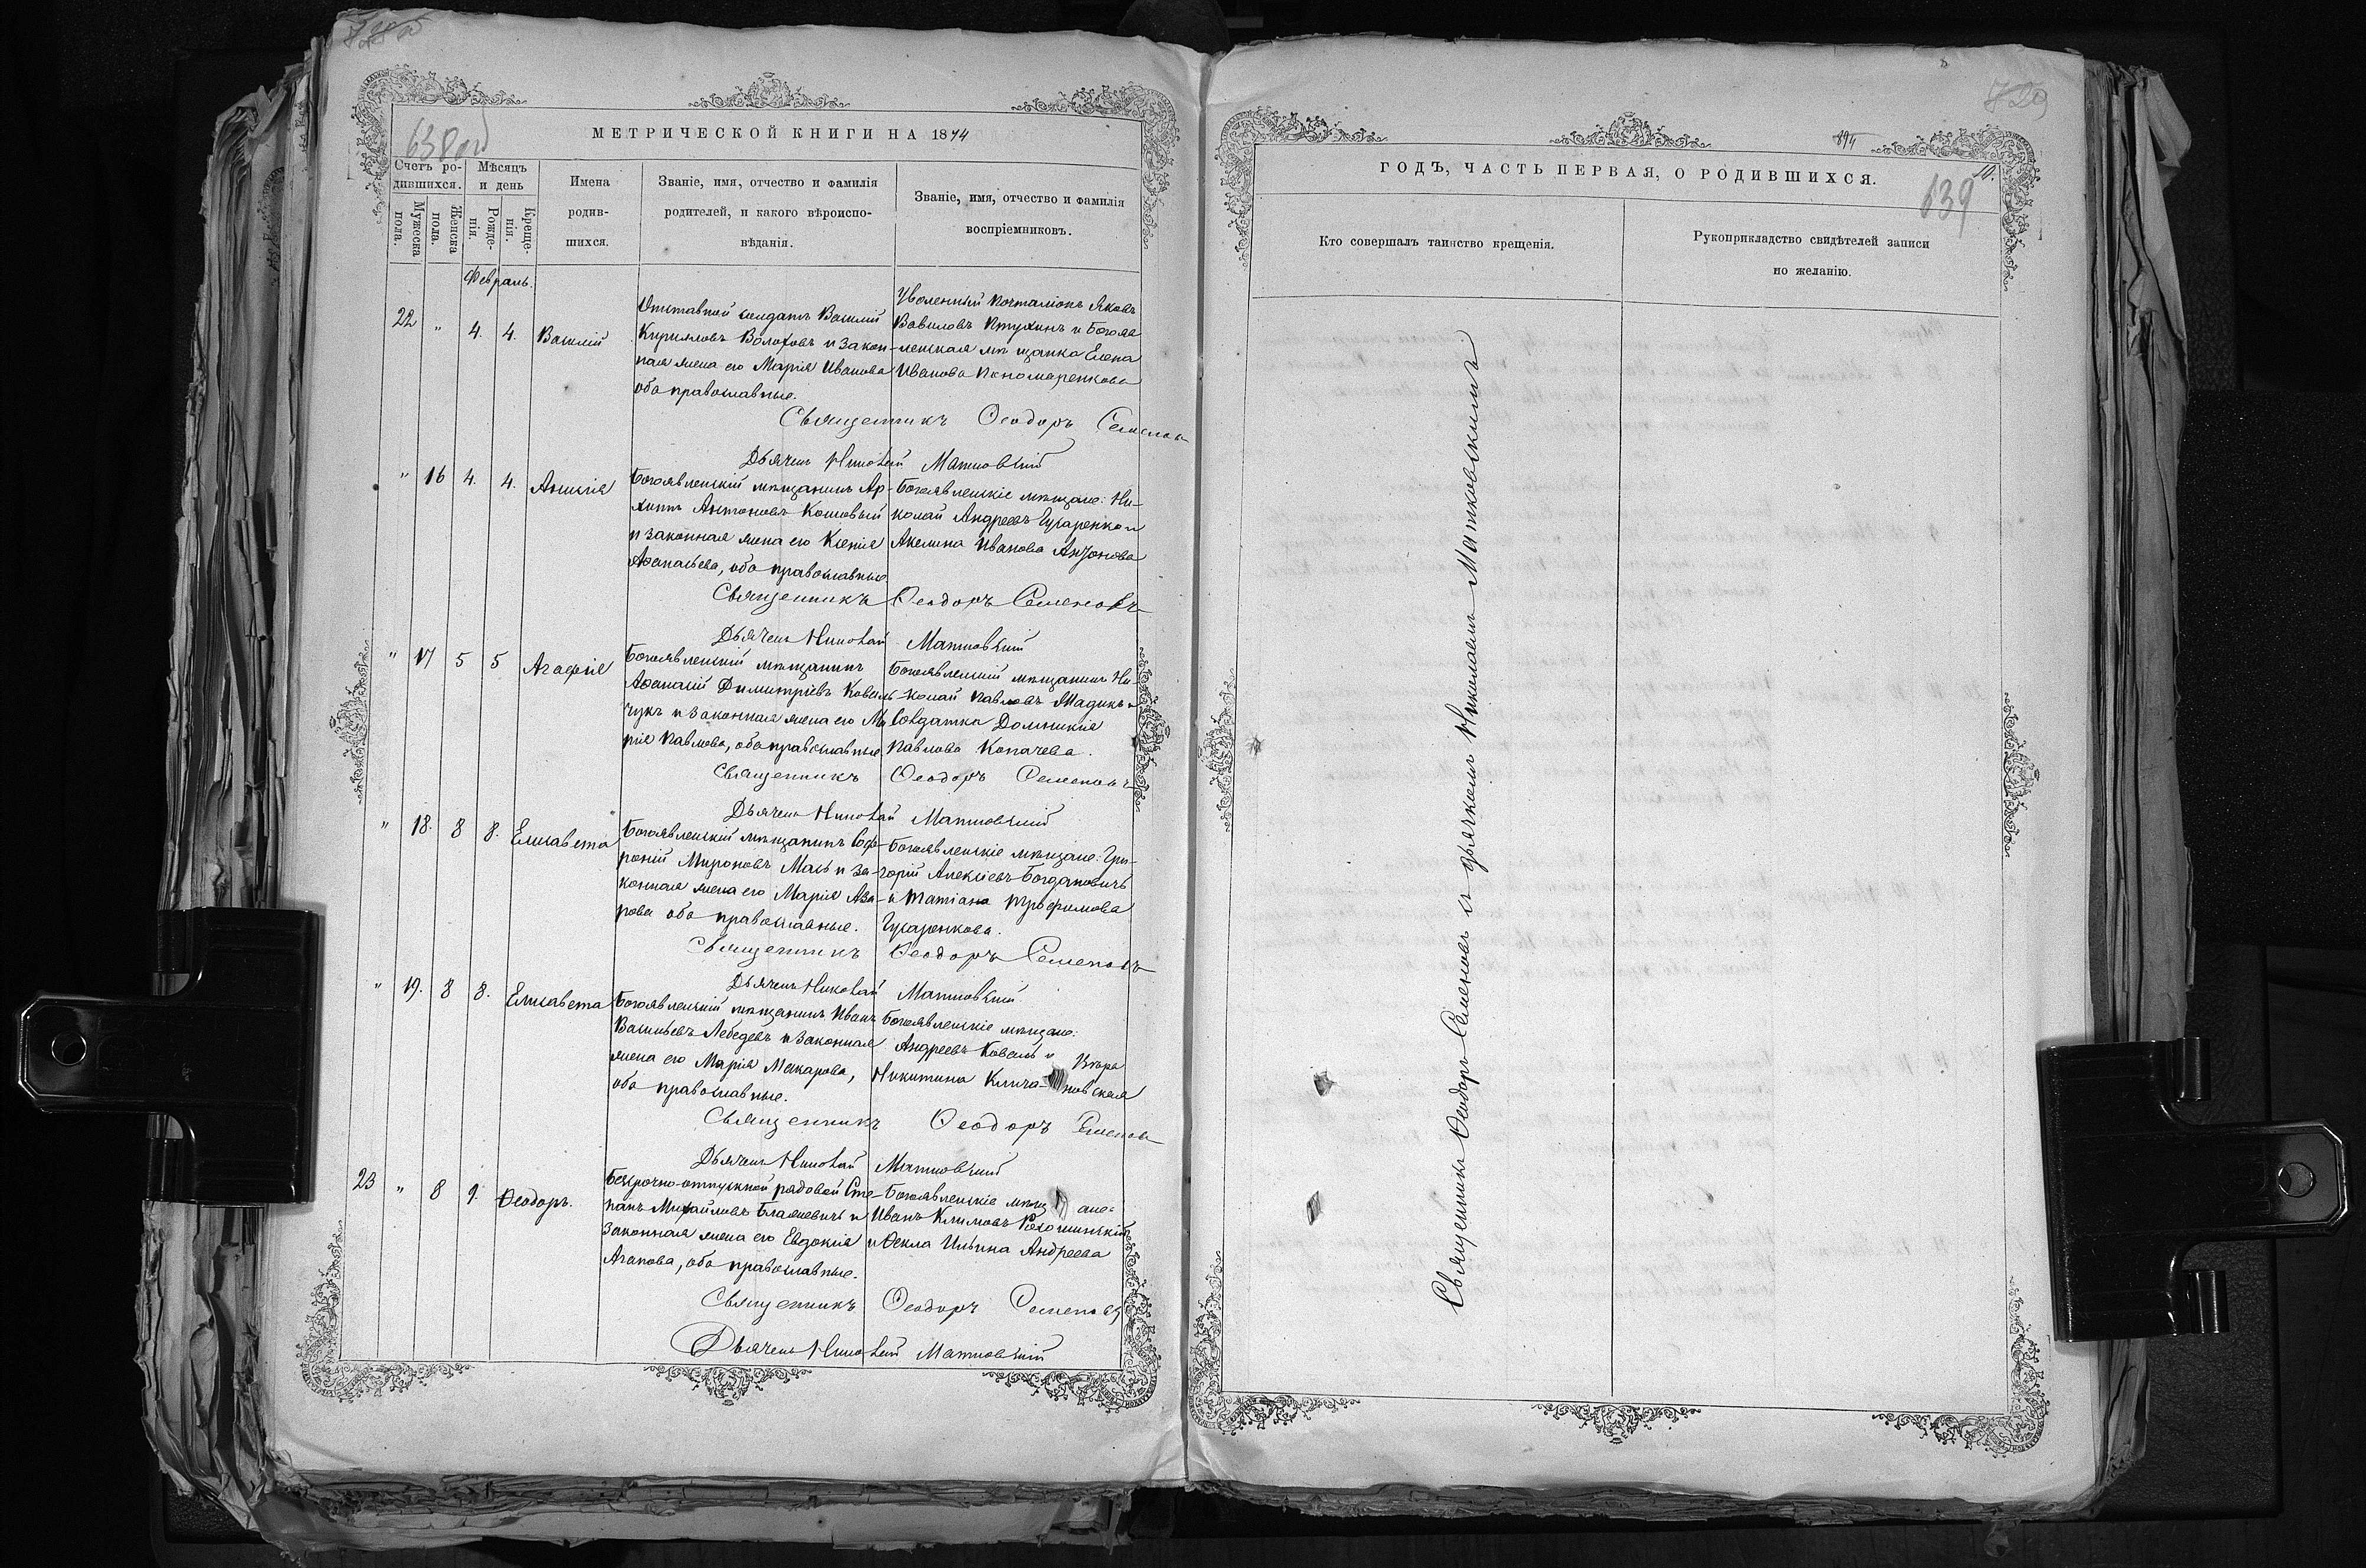 МЕТРИЧЕСКОЙ КНИГИ НА 1874
Счетъ ро-
дившихся.
Мужеска
пола.
Женска
пола.
Мѣсяцъ
и день
Рожде-
нія.
Креще-
нія.
Имена
родив-
шихся.
Званіе, имя, отчество и фамилія
родителей, и какого вѣроиспо-
вѣданія.
Званіе, имя, отчество и фамилія
воспріемниковъ.
Февраль.
22 " 4. 4. Василій
Отставной солдатъ Василій
Кириловъ Волоховъ и закон-
ная жена его Марія Иванова
оба православные.
Уволенный почталіонъ Яковъ
Вавиловъ Птухинъ и Богояв
-ленская мѣщанка Елена
Иванова Пономаренкова
Священникъ Ѳеодоръ Семенов
Дьячекъ Николай Матковскій
" 16 4. 4. Анисія
Богоявленскій мѣщанинъ Ар-
хипъ Антоновъ Кошовый
и законная жена его Ксенія
Аѳанасьева, оба православные
Богоявленскіе мѣщане: Ни-
колай Андреевъ Гусаренко и
Акелина Иванова
Священникъ Ѳеодоръ Семеновъ
Дьячекъ Николай Матковскій
" 17 5 5 Агафія
Богоявленскій мѣщанинъ
Аѳанасій Димитріевъ Коваль-
чукъ и законная жена его Ма
рія Павлова, оба православные
Богоявленскій мѣщанинъ Ни-
колай Павловъ
Солдатка Домникія
Павлова Копачева.
Священникъ Ѳеодоръ Семеновъ
Дьячекъ Николай Матковскій
" 18. 8 8. Елисавета
Богоявленскій мѣщанинъ Соф-
роній Мироновъ Мась и за-
конная жена его Марія Аза-
рова оба православные.
Богоявленскіе мѣщане: Гри-
горій Алексіевъ Богдановичъ
и Татіана Трофимова
Гусаренкова.
Священникъ Ѳеодоръ Семеновъ
Дьячекъ Николай Матковскій
" 19. 8 8. Елисавета
Богоявленскій мѣщанинъ Иванъ
Васильевъ Лебедевъ и законная
жена его Марія Макарова,
оба православные.
Богоявленскіе мѣщане:
Андреевъ Коваль и Вѣра
Никитина
Священникъ Ѳеодоръ Семенов
Дьячекъ Николай Матковскій
23 " 8 9. Ѳеодоръ.
Безсрочно-отпускной рядовой Сте-
панъ Михайловъ Блажиевичъ и
законная жена его Евдокія
Агапова, оба православные.
Богоявленскіе мѣщ ане:
Иванъ Климовъ
и Ѳекла Ильина Андреева
Священникъ Ѳеодоръ Семеновъ
Дьячекъ Николай Матковскій
729
10.
639
ГОДЪ, ЧАСТЬ ПЕРВАЯ, О РОДИВШИХСЯ.
Кто совершалъ таинство крещенія.
Рукоприкладство свидѣтелей записи
по желанію.
Священникъ Ѳеодоръ Семеновъ съ дьячкомъ Николаемъ Матковскимъ